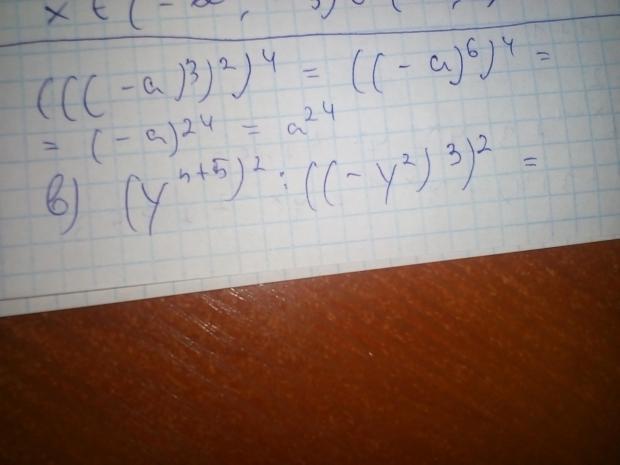 (((-a)³)²)⁴ = ((-a)⁶)⁴ =
= (-a)²⁴ = a²⁴
в) (y^{n+5})² : ((-y²)³)² =